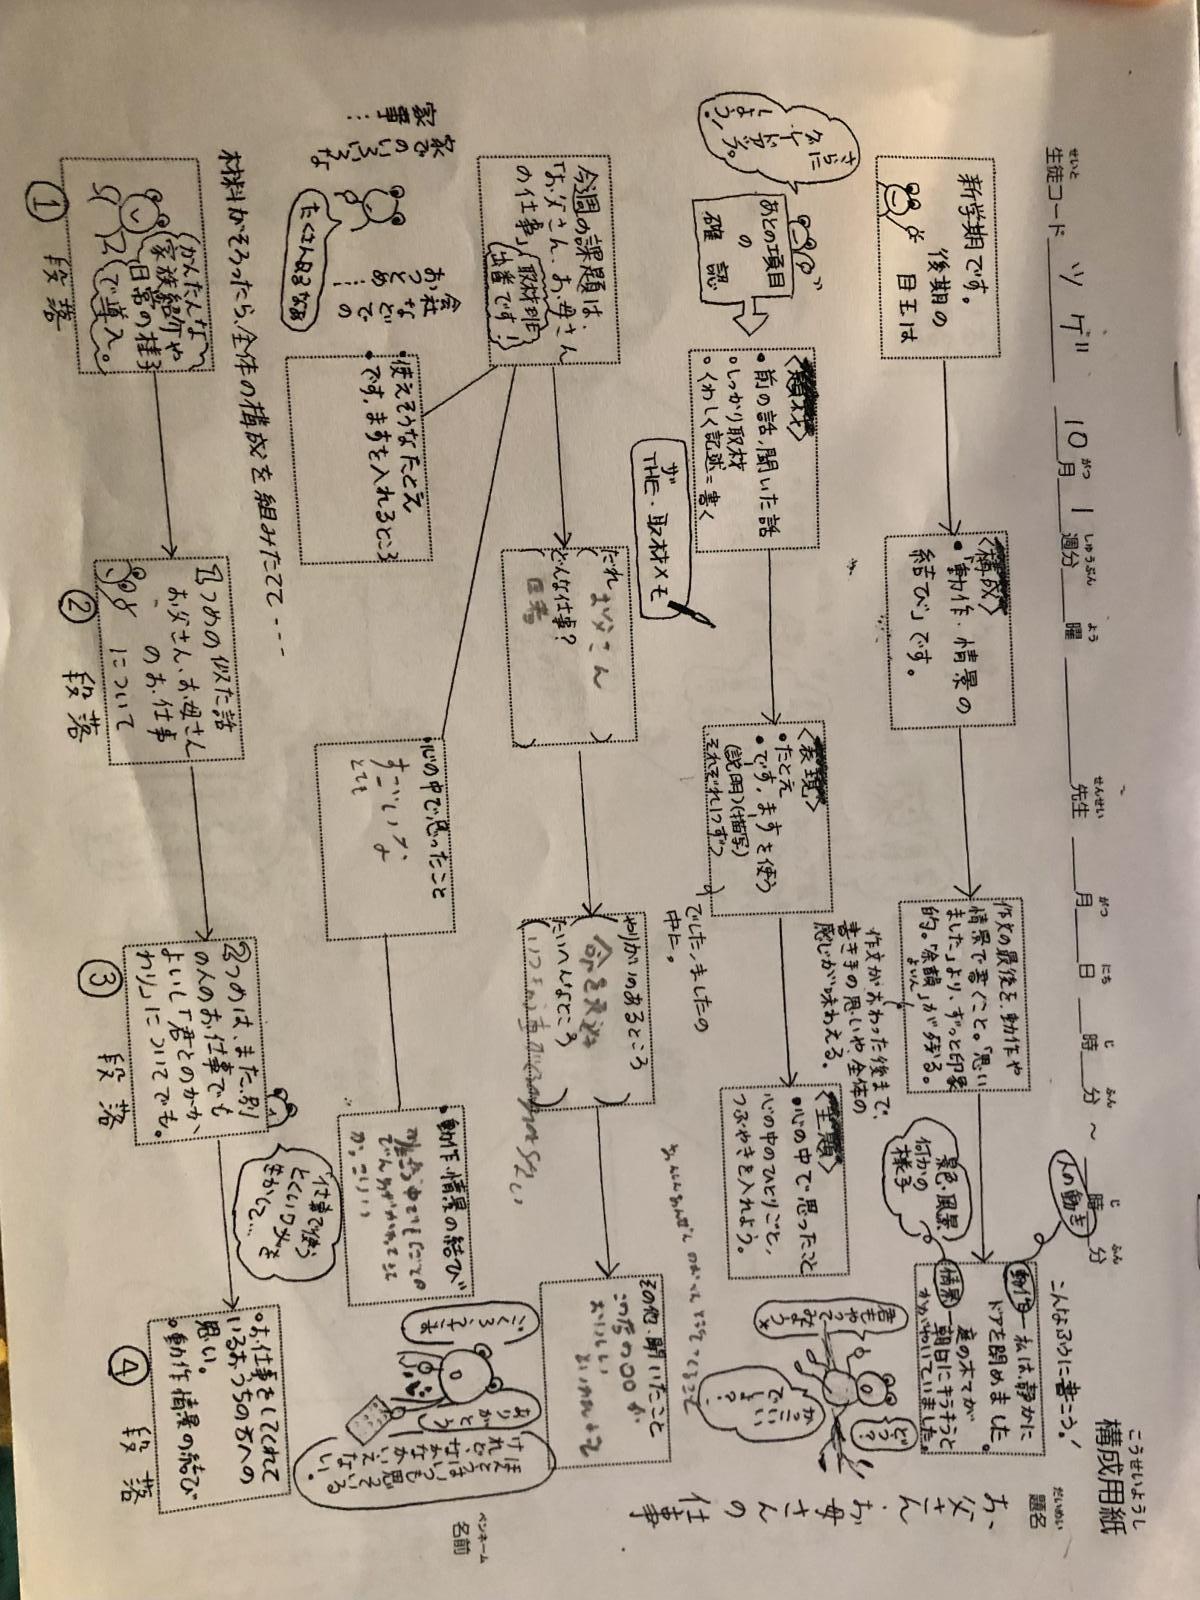 構成用紙
こうせいようし
生徒コード ツゲ 10月 1週分 曜 先生 月 日 時 分 〜 時 分
せいと がつ しゅうぶん よう せんせい がつ にち じ ふん じ ふん
題名
だいめい
お父さん・お母さんの仕事
ペンネーム
名前
こんなふうに書こう!
新学期です。
後期の
目玉は
<構成>
・「動作・情景の
結び」です。
作文の最後を、動作や
情景で書くこと。「思い
ました」より、ずっと印象
的。「余韻」が残る。
よいん
作文がおわった後まで、
書き手の思いや、全体の
感じが味わえる。
人の動き
動作
私は、静かに
ドアを閉めました。
景色・風景
何かの
様子
情景
庭の木てが
朝日にキラキラと
かがやいていました。
さらに
グレード
アップ
しよう!
あとの項目
の
確認
<題材>
・前の話、聞いた話
・しっかり取材
・くわしく記述=書く
<表現>
・たとえ
・です、ますを使う
(説明)(描写)
それぞれ1つずつ
でした、ましたの
中に。
<主題>
・心の中で思ったこと
心の中のひとりごと、
つぶやきを入れよう。
君も
やって
みよう
どう?
かっこいい
でしょ?
ザ
THE・取材メモ
今週の課題は、
「お父さん、お母さん
の仕事」
取材班
出番です!
だれ
お父さん
どんな仕事?
やりがいのあるところ
たいへんなところ
その他、聞いたこと
会社などでの
おつとめ…
家でのいろいろな
家事…
たくさんあるなあ
・使えそうなたとえ
・です、ますを入れるところ
・心の中で思ったこと
とても
すごいなあ
・動作・情景の結び
ごくろうさま
ありがとう
材料がそろったら、全体の構成を組みたてて---
かんたんな
家族紹介や
日常の様子
で導入。
① 段落
1つめの似た話
お父さん、お母さん
のお仕事
について
② 段落
2つめは、また、別
の人のお仕事でも
よいし「君とのかか
わり」についてでも。
③ 段落
仕事で使う
とくいワザを
きかして…
・お仕事をしてくれて
いるおうちの方への
思い。
・動作・情景の結び
④ 段落